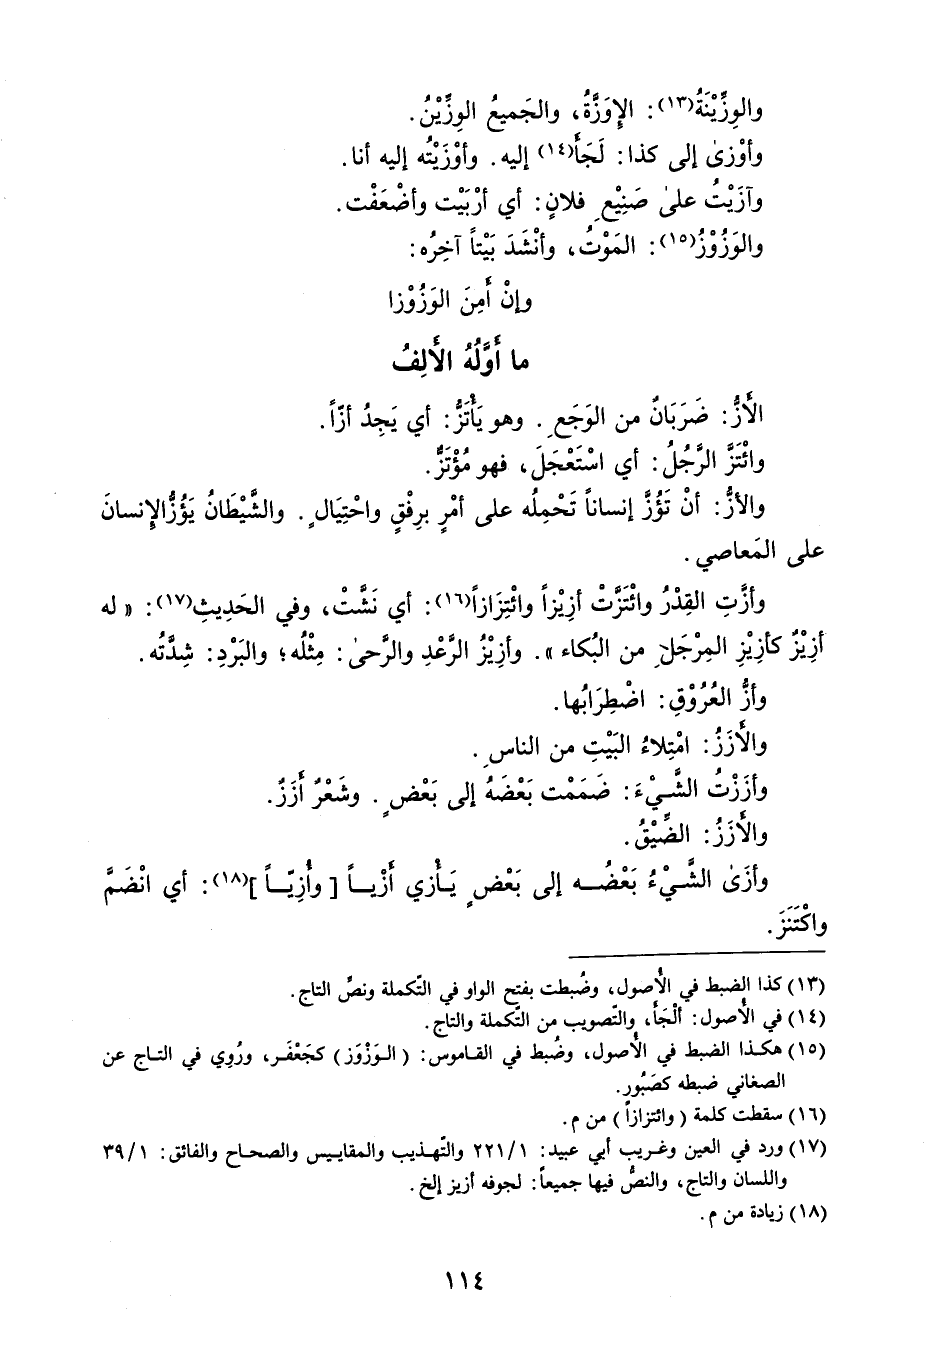 والوِزِّيْنَةُ(١٣): الإِوَزَّةُ، والجَميعُ الوِزِّيْنُ.
وأوْزىٰ إلى كذا: لَجَأَ(١٤) إليه. وأوْزَيْتُه إليه أنا.
وآزَيْتُ علىٰ صَنِيْعِ فلانٍ: أي أرْبَيْت وأضْعَفْت.
والوَزُوْزُ(١٥): المَوْتُ، وأنْشَدَ بَيْتاً آخِرُه:
وإنْ أَمِنَ الوَزُوْزا
ما أَوَّلُهُ الأَلِفُ
الأَزُّ: ضَرَبَانٌ من الوَجَعِ. وهو يَأْتَزُّ: أي يَجِدُ أزّاً.
وائْتَزَّ الرَّجُلُ: أي اسْتَعْجَلَ، فهو مُؤْتَزٌّ.
والأزُّ: أنْ تَؤُزَّ إنساناً تَحْمِلُه على أمْرٍ برِفْقٍ واحْتِيَالٍ. والشَّيْطَانُ يَؤُزُّ الإِنسانَ
على المَعاصي.
وأزَّتِ القِدْرُ وائْتَزَّتْ أزِيْزاً وائْتِزَازاً(١٦): أي نَشَّتْ، وفي الحَدِيثِ(١٧): « له
أزِيْزٌ كأزِيْزِ المِرْجَلِ من البُكاء ». وأزِيْزُ الرَّعْدِ والرَّحىٰ: مِثْلُه؛ والبَرْدِ: شِدَّتُه.
وأزُّ العُرُوْقِ: اضْطِرَابُها.
والأَزَزُ: امْتِلاءُ البَيْتِ من الناسِ.
وأزَزْتُ الشَّيْءَ: ضَمَمْت بَعْضَهُ إلى بَعْضٍ. وشَعْرٌ أَزَزٌ.
والأَزَزُ: الضِّيْقُ.
وأزَىٰ الشَّيْءُ بَعْضُه إلى بَعْضٍ يَأْزي أَزْياً [ وأُزِيّاً ](١٨): أي انْضَمَّ
واكْتَنَزَ.
(١٣) كذا الضبط في الأُصول، وضُبطت بفتح الواو في التّكملة ونصِّ التاج.
(١٤) في الأُصول: أَلْجَأَ، والتّصويب من التّكملة والتاج.
(١٥) هكذا الضبط في الأُصول، وضُبط في القاموس: ( الوَزْوَز ) كجَعْفَر، ورُوِي في التاج عن
الصغاني ضبطه كصَبُور.
(١٦) سقطت كلمة ( وائتزازاً ) من م.
(١٧) ورد في العين وغريب أبي عبيد: ٢٢١/١ والتّهذيب والمقاييس والصحاح والفائق: ٣٩/١
واللسان والتاج، والنصُّ فيها جميعاً: لجوفه أزيز إلخ.
(١٨) زيادة من م.
١١٤